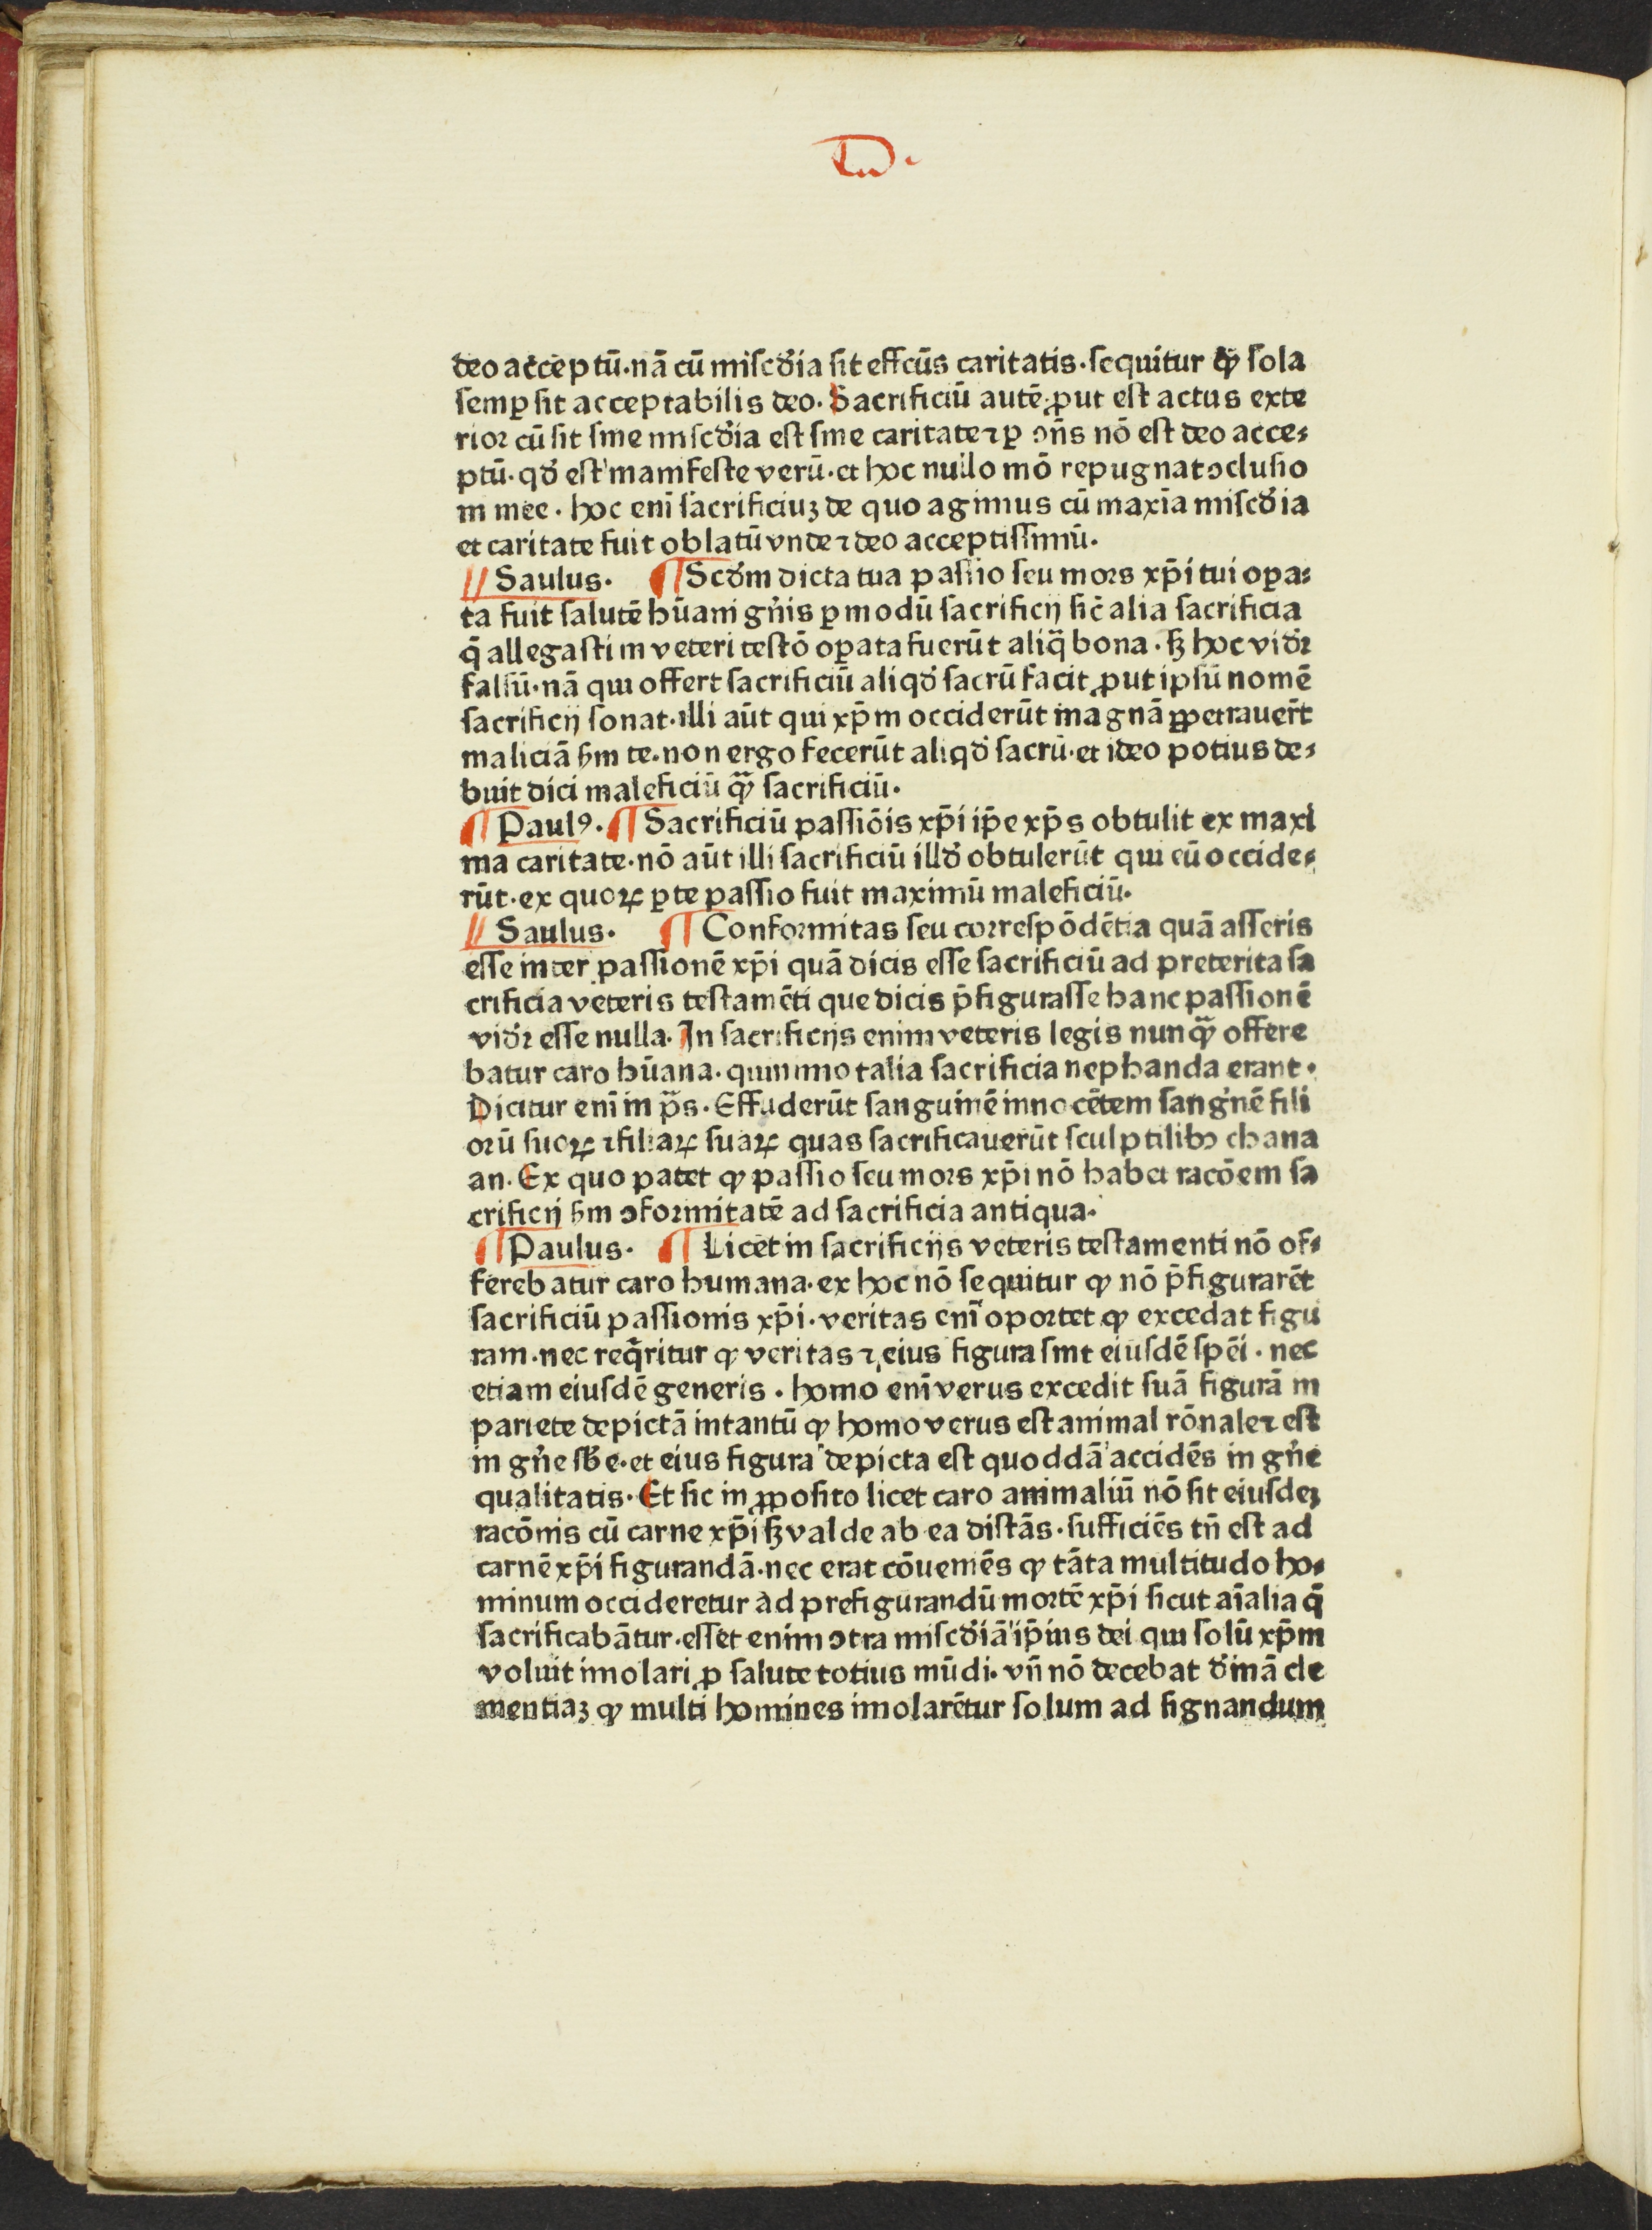 deo acceptū·nā cū miſcd̄ia ſit effcūs caritatis·ſequitur ꝙ ſola
ſemꝑ ſit acceptabilis deo· Sacrificiū autē ꝓut eſt actus exte
rior cū ſit ſine miſcd̄ia eſt ſine caritate ⁊ ꝑ ꝯn̄s nō eſt deo acce⸗
ptū· qd̄ eſt manifeſte verū· et hoc nullo mō repugnat ꝯcluſio
ni mee · hoc enī ſacrificiuꝫ de quo agimus cū maxīa miſcd̄ia
et caritate fuit oblatū vnde ⁊ deo acceptiſſimū·
Saulus· ¶ Scd̄m dicta tua paſſio ſeu mors xp̄i tui oꝑa⸗
ta fuit ſalutē hūani gn̄is ꝑ modū ſacrificij ſic̄ alia ſacrificia
q̄ allegaſti in veteri teſtō oꝑata fuerūt aliq̄ bona · ſꝫ hoc vid̄r
falſū·nā qui offert ſacrificiū aliqd̄ ſacrū facit ꝓut ipſū nomē
ſacrificij ſonat·illi aūt qui xp̄m occiderūt magnā ꝑpetrauer̄t
maliciā ẜm te·non ergo fecerūt aliqd̄ ſacrū·et ideo potius de⸗
buit dici maleficiū qͣꝫ ſacrificiū·
¶ Paulꝰ· ¶ Sacrificiū paſſiōis xp̄i ip̄e xp̄s obtulit ex maxi
ma caritate·nō aūt illi ſacrificiū illd̄ obtulerūt qui eū occide⸗
rūt·ex quoꝝ ꝑte paſſio fuit maximū maleficiū·
Saulus· ¶ Conformitas ſeu correſpōdētia quā aſſeris
eſſe inter paſſionē xp̄i quā dicis eſſe ſacrificiū ad preterita ſa
crificia veteris teſtamēti que dicis p̄figuraſſe hanc paſſionē
vid̄r eſſe nulla· In ſacrificijs enim veteris legis nunqͣꝫ offere
batur caro hūana·quinimo talia ſacrificia nephanda erant·
Dicitur enī in p̄s·Effuderūt ſanguinē innocētem ſangn̄ē fili
orū ſuoꝝ ⁊ filiaꝝ ſuaꝝ quas ſacrificauerūt ſculptilibꝯ chana
an· Ex quo patet ꝙ paſſio ſeu mors xp̄i nō habet racōem ſa
crificij ẜm ꝯformitatē ad ſacrificia antiqua·
¶ Paulus· ¶ Licet in ſacrificijs veteris teſtamenti nō of⸗
ferebatur caro humana·ex hoc nō ſequitur ꝙ nō p̄figurarēt
ſacrificiū paſſionis xp̄i·veritas enī oportet ꝙ excedat figu
ram·nec req̄ritur ꝙ veritas ⁊ eius figura ſint eiuſdē ſpēi · nec
etiam eiuſdē generis · homo enī verus excedit ſuā figurā in
pariete depictā intantū ꝙ homo verus eſt animal rōnale ⁊ eſt
in gn̄e ſb̄e·et eius figura depicta eſt quoddā accidēs in gn̄e
qualitatis· Et ſic in ꝓpoſito licet caro animaliū nō ſit eiuſdeꝫ
racōnis cū carne xp̄i ſꝫ valde ab ea diſtās·ſufficiēs tn̄ eſt ad
carnē xp̄i figurandā·nec erat cōueniēs ꝙ tāta multitudo ho⸗
minum occideretur ad prefigurandū mortē xp̄i ſicut aīalia q̄
ſacrificabātur·eſſet enim ꝯtra miſcd̄iā ip̄ius dei qui ſolū xp̄m
voluit imolari ꝓ ſalute totius mūdi· vn̄ nō decebat d̄inā cle
mentiaꝫ ꝙ multi homines imolarētur ſolum ad ſignandum